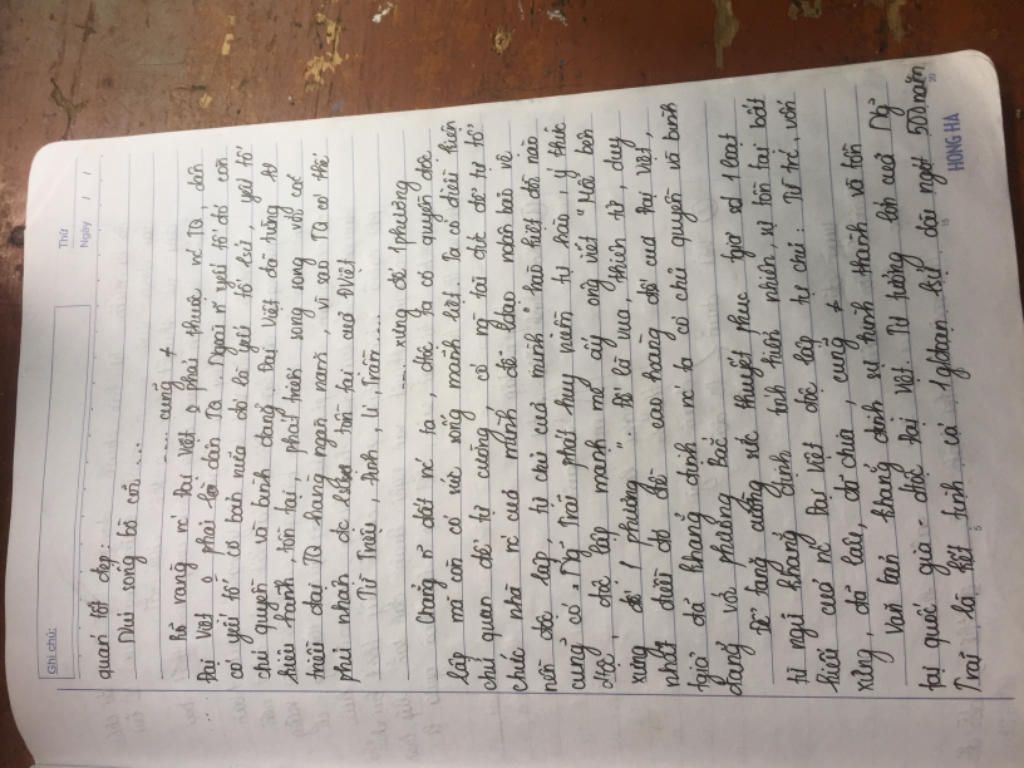 Ghi chú:
Thứ
Ngày / /
quán tốt đẹp:
Núi sông bờ cõi....
.... cũng ≠
rõ ràng nc Đại Việt o phải thuộc nc TQ, dân
Đại Việt o phải là dân TQ. Ngoài n~ yếu tố đó còn
có yếu tố cơ bản nữa đó là yếu tố lsử, yếu tố
chủ quyền và ranh giới. Đại Việt đã từng tự
hiểu hành, tồn tại, phát triển song song với các
triều đại TQ hàng ngàn năm, vì sao TQ có thể
phủ nhận đc sự tồn tại của ĐViệt
Từ Triệu, Đinh, Lí, Trần...
.... xưng đế 1 phương
Chẳng n~ đất nc ta, dtộc ta có quyền độc
lập mà còn có sức sống mãnh liệt. Ta có điều kiện
chủ quan để tự cường, có n~ tài đức để tự tổ
chức nhà nc của mình, để lđạo nhân dân ta về
nền độc lập, tự chủ của mình "hào kiệt đời nào
cũng có". Ng Trãi phát huy niềm tự hào, ý thức
dtộc, độc lập mạnh mẽ ấy ông viết "Mỗi bên
xưng đế 1 phương". "Đế" là vua, thiên tử, duy
nhất điều đó đề cao hoàng đế của Đại Việt,
tgiả đã khẳng định nc ta có chủ quyền và bình
đẳng với phương Bắc
Để tăng cường sức thuyết phục tgiả sd 1 loạt
từ ngữ khẳng định tính hiển nhiên, sự tồn tại bất
biến của nc Đại Việt độc lập tự chủ: Từ trc, vốn
xưng, đã lâu, đã chia, cũng ≠
Văn bản khẳng định sự hình thành và tồn
tại quốc gia - dtộc Đại Việt. Tư tưởng lớn của Ng
Trãi là kết tinh cả 1 gđoạn lsử dài ngót 500 năm
HONG HA
5 15 20